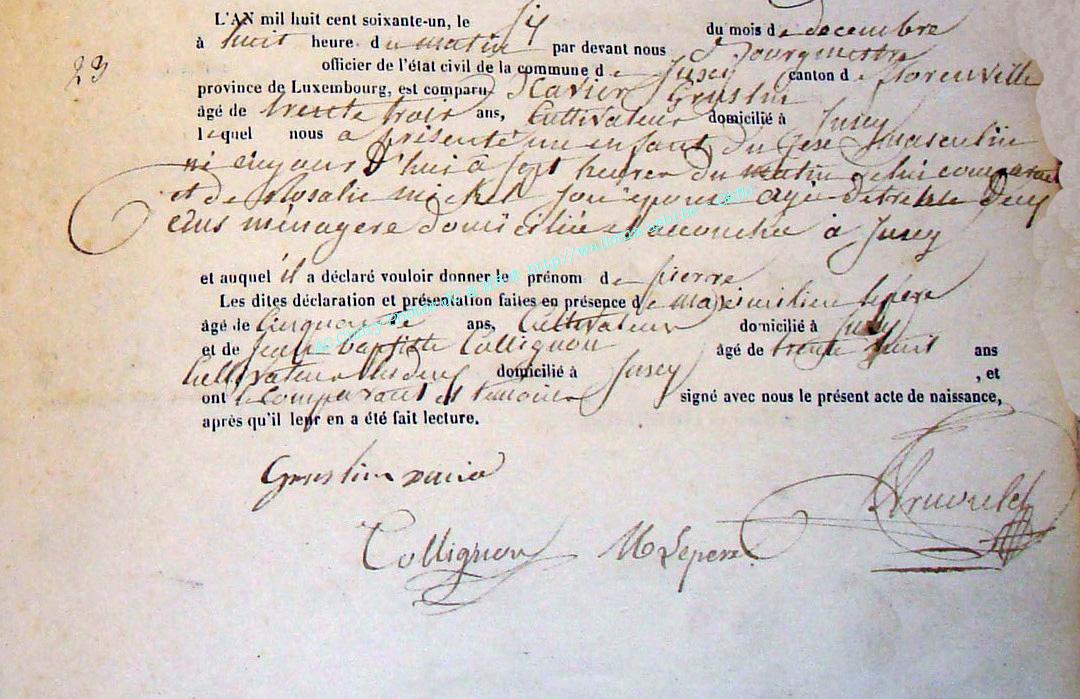 L'AN mil huit cent soixante-un, le six du mois de decembre
à huit heure du matin par devant nous Bourgmestre
23
officier de l'état civil de la commune de Jusey canton de florenville
province de Luxembourg, est comparu Xavier Grustin
âgé de trente trois ans, Cultivateur domicilié à Jusey
lequel nous a présenté un enfant du sexe masculin
né aujourd'hui à sept heures du matin de lui comparant
et de Rosalie michel son épouse agée de trente deux
ans ménagère domiciliée et accouchée à Jusey
et auquel il a déclaré vouloir donner le prénom de pierre
Les dites déclaration et présentation faites en présence de maximilien lepère
âgé de Cinquante ans, Cultivateur domicilié à Jusey
et de Jean baptiste Collignon âgé de trente huit ans
Cultivateur les deux domicilié à Jusey , et
ont le comparant et témoins signé avec nous le présent acte de naissance,
après qu'il leur en a été fait lecture.
Grustin xavier
Collignon M Lepere